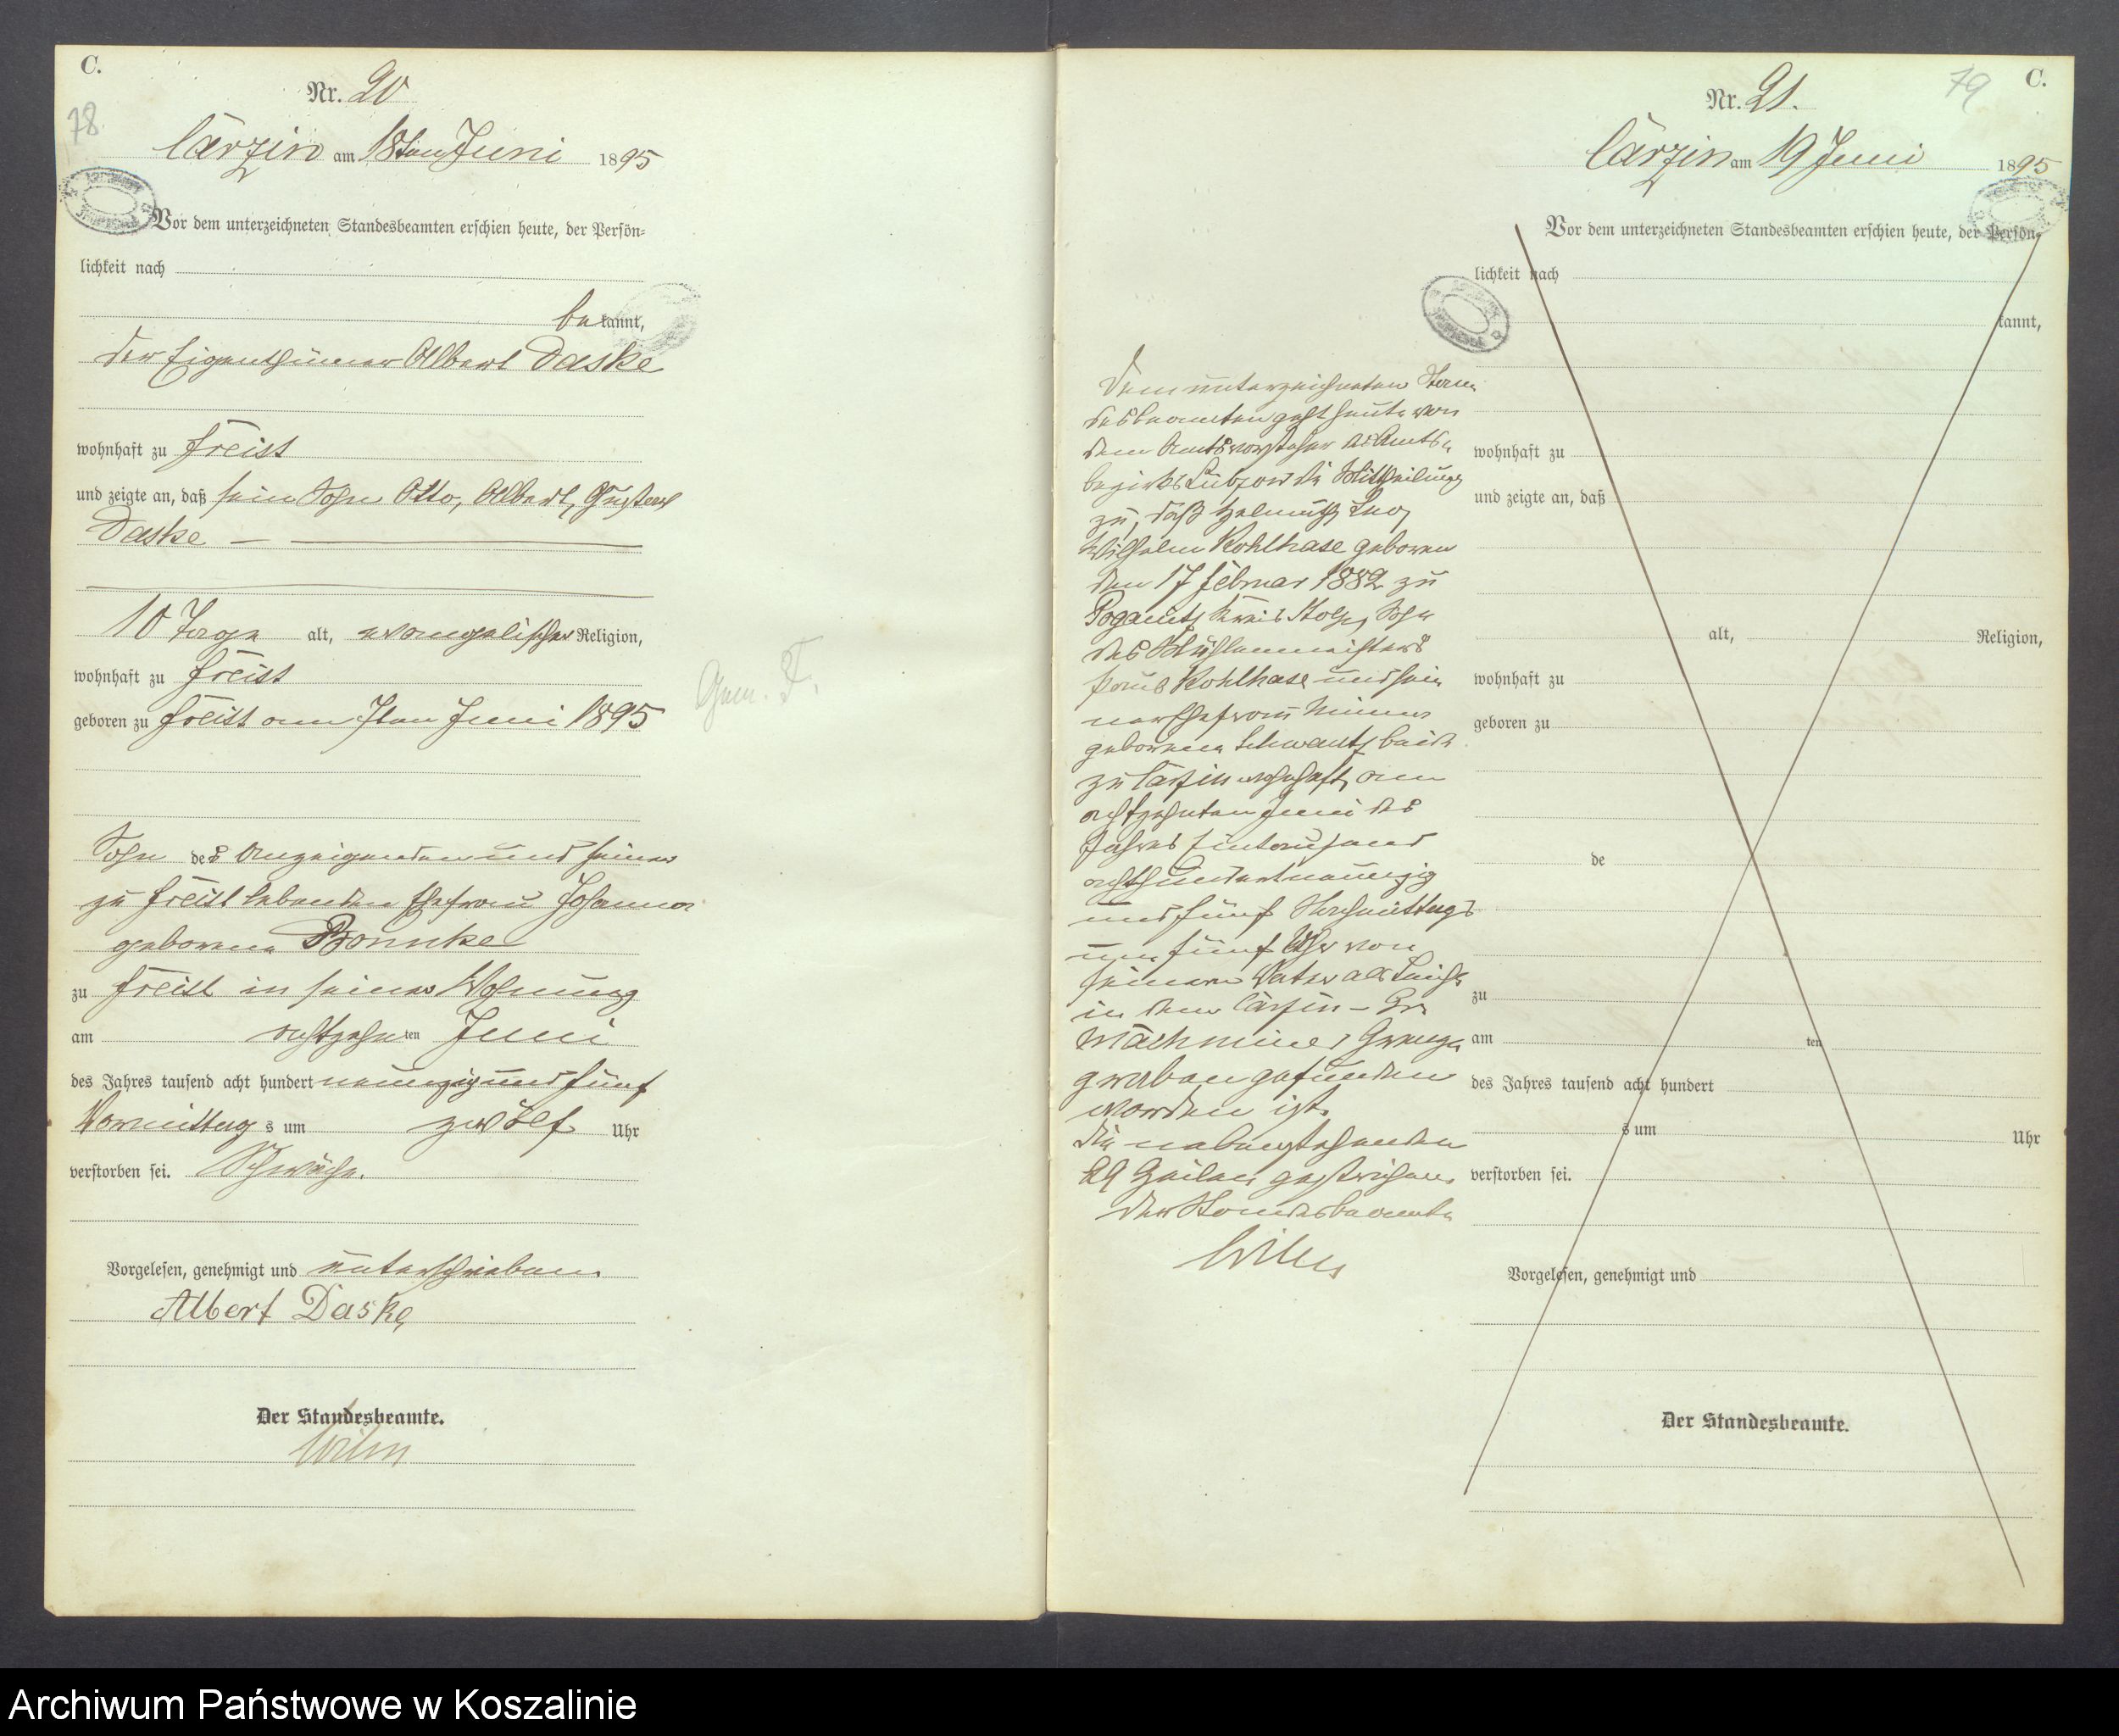 C.
78.
Nr. 20
Cärzin am 18ten Juni 1895
Vor dem unterzeichneten Standesbeamten erschien heute, der Persön-
lichkeit nach
bekannt,
der Eigenthümer Albert Daske
wohnhaft zu Freist
und zeigte an, daß sein Sohn Otto, Albert, Gustav
Daske
10 Tage alt, evangelischer Religion,
wohnhaft zu Freist
geboren zu Freist am 7ten Juni 1895
Sohn des Anzeigenden und seiner
zu Freist lebenden Ehefrau Johanna
geborene
zu Freist in seiner Wohnung
am achtzehnten Juni
des Jahres tausend acht hundert neunzig und fünf
Vormittags um zwölf Uhr
verstorben sei. Schwäche.
Vorgelesen, genehmigt und unterschrieben
Albert Daske
Der Standesbeamte.
Wilm
Gem. F.
79
C.
Nr. 21.
Cärzin am 19 Juni 1895
Vor dem unterzeichneten Standesbeamten erschien heute, der Persön-
lichkeit nach
kannt,
wohnhaft zu
und zeigte an, daß
alt, Religion,
wohnhaft zu
geboren zu
de
zu
am ten
des Jahres tausend acht hundert
s um Uhr
verstorben sei.
Vorgelesen, genehmigt und
Der Standesbeamte.
Dem unterzeichneten Stan-
desbeamten geht heute von
dem Amtsvorsteher des Amts-
bezirks Lübzow die Mittheilung
zu, daß Helmuth Leo
Wilhelm Kohlhase geboren
den 17 Februar 1882 zu
Poganitz Kreis Stolp, Sohn
des Mühlenmeisters
Franz Kohlhase und sei-
ner Ehefrau Minna
geborene Schwantz beide
zu Cärzin wohnhaft, am
achtzehnten Juni des
Jahres Eintausend
achthundertneunzig
und fünf Nachmittags
um fünf Uhr von
seinem Vater als Leiche
in dem Cärzin - Gr.
Machminer Grenz-
graben gefunden
worden ist.
Die nebenstehenden
29 Zeilen gestrichen.
Der Standesbeamte
Wilm
Archiwum Państwowe w Koszalinie